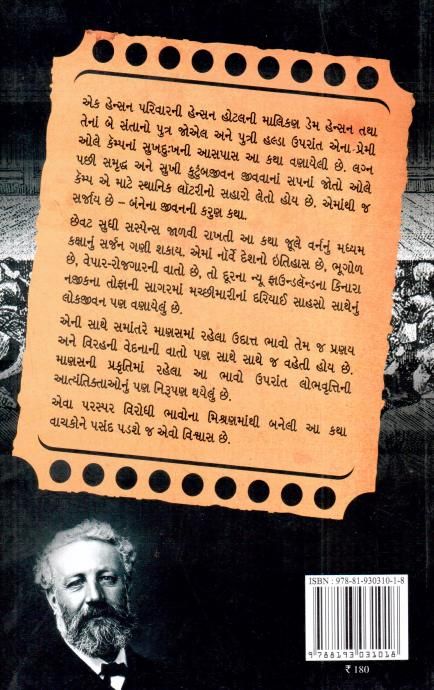 એક હેન્સન પરિવારની હેન્સન હોટલની માલિકણ ડેમ હેન્સન તથા
તેનાં બે સંતાનો પુત્ર જોએલ અને પુત્રી હલ્ડા ઉપરાંત એના પ્રેમી
ઓલે કૅમ્પનાં સુખદુઃખની આસપાસ આ કથા વણાયેલી છે. લગ્ન
પછી સમૃદ્ધ અને સુખી કુટુંબજીવન જીવવાનાં સપનાં જોતો ઓલે
કૅમ્પ એ માટે સ્થાનિક લૉટરીનો સહારો લેતો હોય છે. એમાંથી જ
સર્જાય છે – બંનેના જીવનની કરુણ કથા.
છેવટ સુધી સસ્પેન્સ જાળવી રાખતી આ કથા જૂલે વર્નનું મધ્યમ
કક્ષાનું સર્જન ગણી શકાય. એમાં નોર્વે દેશનો ઇતિહાસ છે, ભૂગોળ
છે, વેપાર-રોજગારની વાતો છે, તો દૂરના ન્યૂ ફાઉન્ડલૅન્ડના કિનારા
નજીકના તોફાની સાગરમાં મચ્છીમારીનાં દરિયાઈ સાહસો સાથેનું
લોકજીવન પણ વણાયેલું છે.
એની સાથે સમાંતરે માણસમાં રહેલા ઉદાત્ત ભાવો તેમ જ પ્રણય
અને વિરહની વેદનાની વાતો પણ સાથે સાથે જ વહેતી હોય છે.
માણસની પ્રકૃતિમાં રહેલા આ ભાવો ઉપરાંત લોભવૃત્તિની
આત્યંતિક્તાઓનું પણ નિરૂપણ થયેલું છે.
એવા પરસ્પર વિરોધી ભાવોના મિશ્રણમાંથી બનેલી આ કથા
વાચકોને પસંદ પડશે જ એવો વિશ્વાસ છે.
ISBN : 978-81-930310-1-8
9 788193 031018
₹ 180